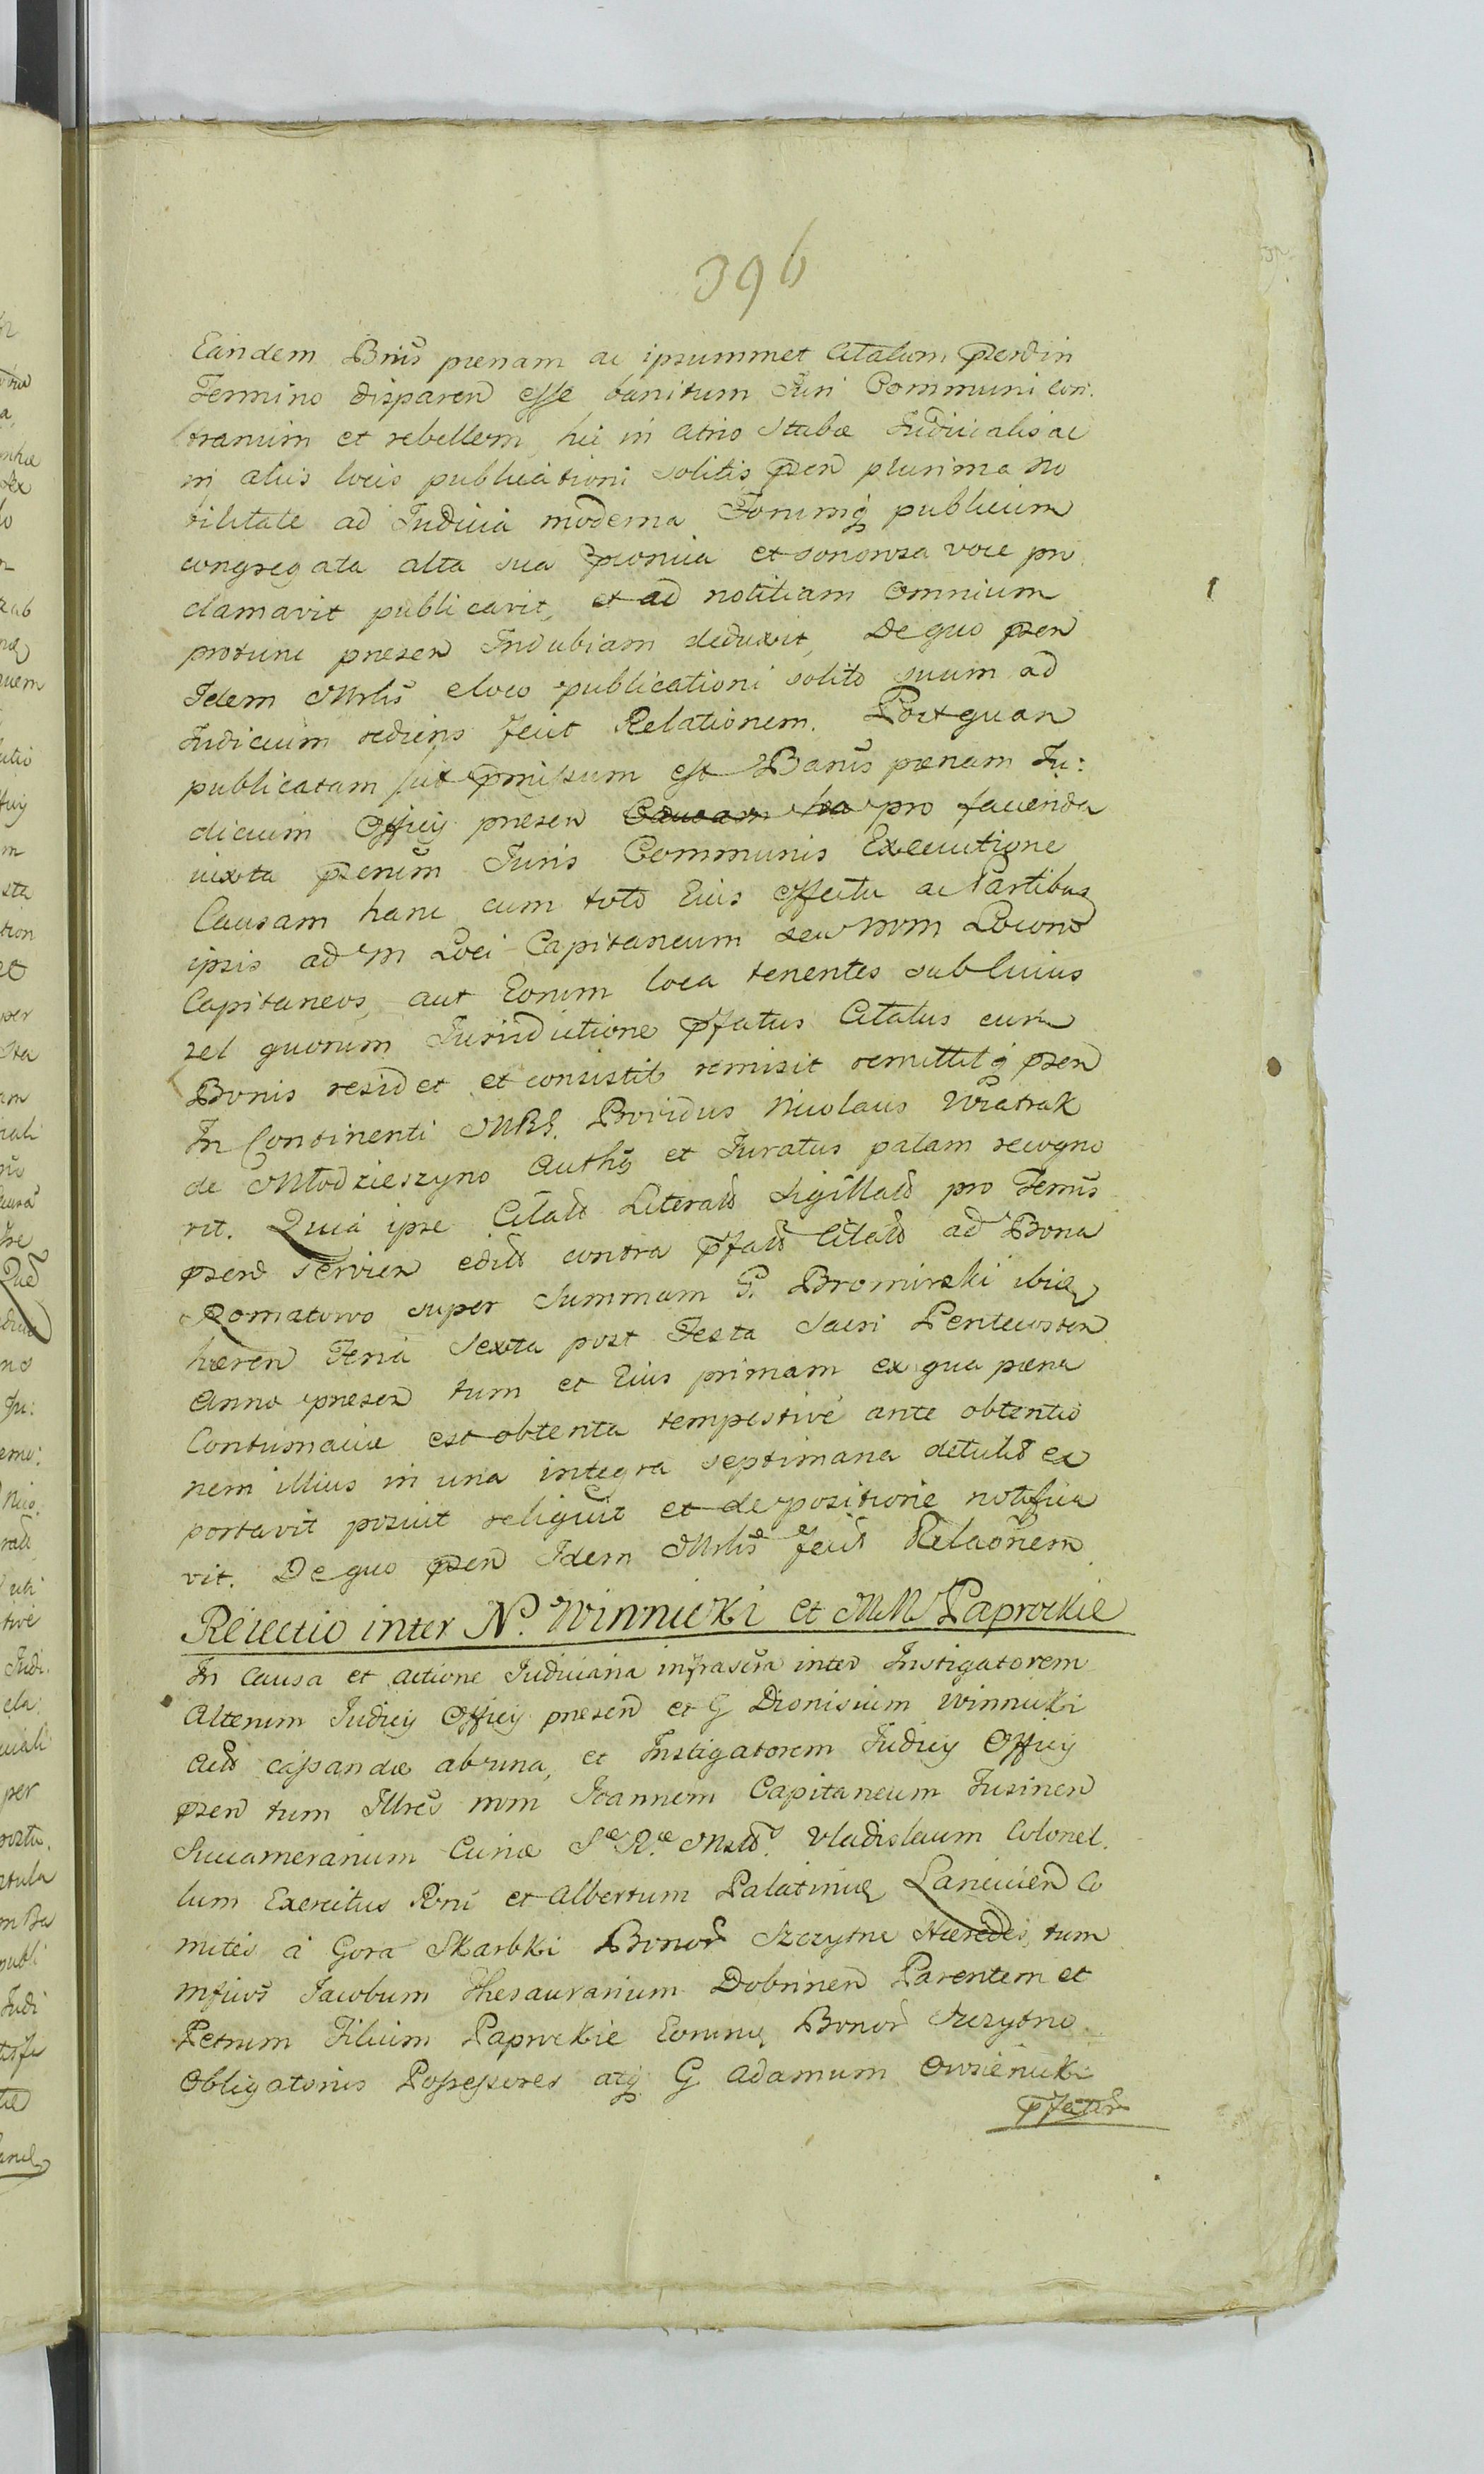 396
Eandem Bnis pœnam ac ipsummet Citatum
Termino disparen esse banitum Juri Communi con:
trarium et rebellem, hic in atrio Stubæ Judicialis ac
in aliis locis publicationi solitis pñ plurima no
bilitate ad Judicia moderna Forumq publicum
congregata alta sua et sonorosa voce pro
clamavit publicavit, et ad notitiam omnium
protunc presen Indubiam deduxit, De quo pñ
Idem Mrlis e loco publicationi solito suum ad
Judicium rediens fecit Relationem. Postquam
publicatam sit pmissum est Banis pœnam Ju:
dicium Officij presen pro facienda
iuxta Juris Communis Executione
Causam hanc cum toto Eius effectu ac Partibus
ipsis ad m Loci Capitaneum seu mm Locorum
Capitaneos, aut Eorum loca tenentes sub cuius
vel quorum Jurisdictione pfatus Citatus cum
Bonis residet et consistit remisit remittitq pñ
In Continenti MRS. Providus Nicolaus Wiatrak
de Młodzieszyno Auths et Juratus palam recogno
vit. Quia ipse Citaõ Literaõ Sigillaõ pro Termis
pñ Servien ediõ contra pfaõ Citaõ ad Bona
Romatowo super Summam G. Bromirski ibid
hæren Feria Sexta post Festa Sacri Pentecosten
Anno presen tum et Eius primam ex qua pœna
Contumaciæ est obtenta tempestivè ante obtentio
nem illius in una integra septimana detulit ex
portavit posuit reliquit et de positione notifica
vit. De quo pñ Idem Mrlis fecit Relaõnem
Reiectio inter N. Winnicki et MM Paprockie
In Causa et actione Judiciaria infrascra inter Instigatorem
Alterum Judicij Officij presen et G Dionisium Winnicki
Aõ cassandæ ab una, et Instigatorem Judicij Officij
pñ tum Illres mm Joannem Capitaneum Jusinen
Succamerarium Curiæ Sæ Ræ Msts. Vladislaum Colonel
lum Exercitus Rñi et Albertum Palatinid Lancicien Co
mites à Gora Skarbki Bonor Szczytno Hæredes, tum
mficos Jacobum Thesaurarium Dobrinen Parentem et
Petrum Filium Paprockie Eorund Bonor Szczytno
Obligatorios Possessores atq G Adamum Owsienicki
pfator